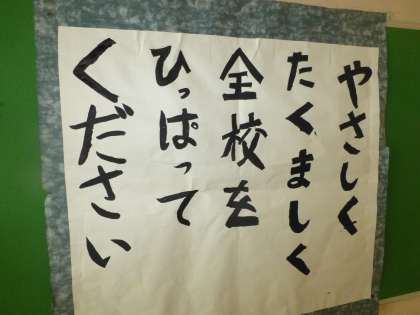 やさしく
たくましく
全校を
ひっぱって
ください